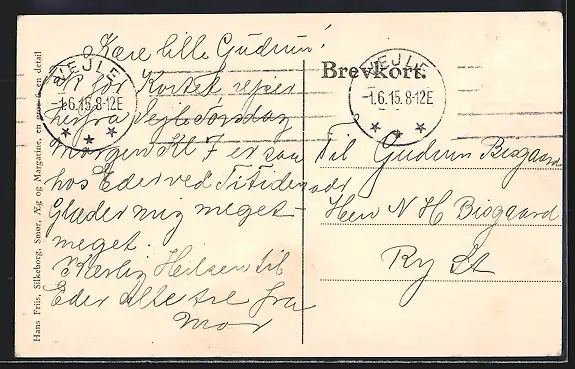 Kære lille Gudrun!
P.S. for Kortet rejser
herfra Vejle Søndag
morgen Kl 7 er saa
hos Eder ved Titiden
Glæder mig meget
meget.
Kærlig Hilsen til
Eder alle tre fra
Mor
VEJLE
-1.6.15.8-12E
Brevkort.
VEJLE
-1.6.15.8-12E
Til Gudrun Bisgaard
adr
Herr N H Bisgaard
Ry St
Hans Friis, Silkeborg. Smør, Æg og Margarine, en gros & en detail